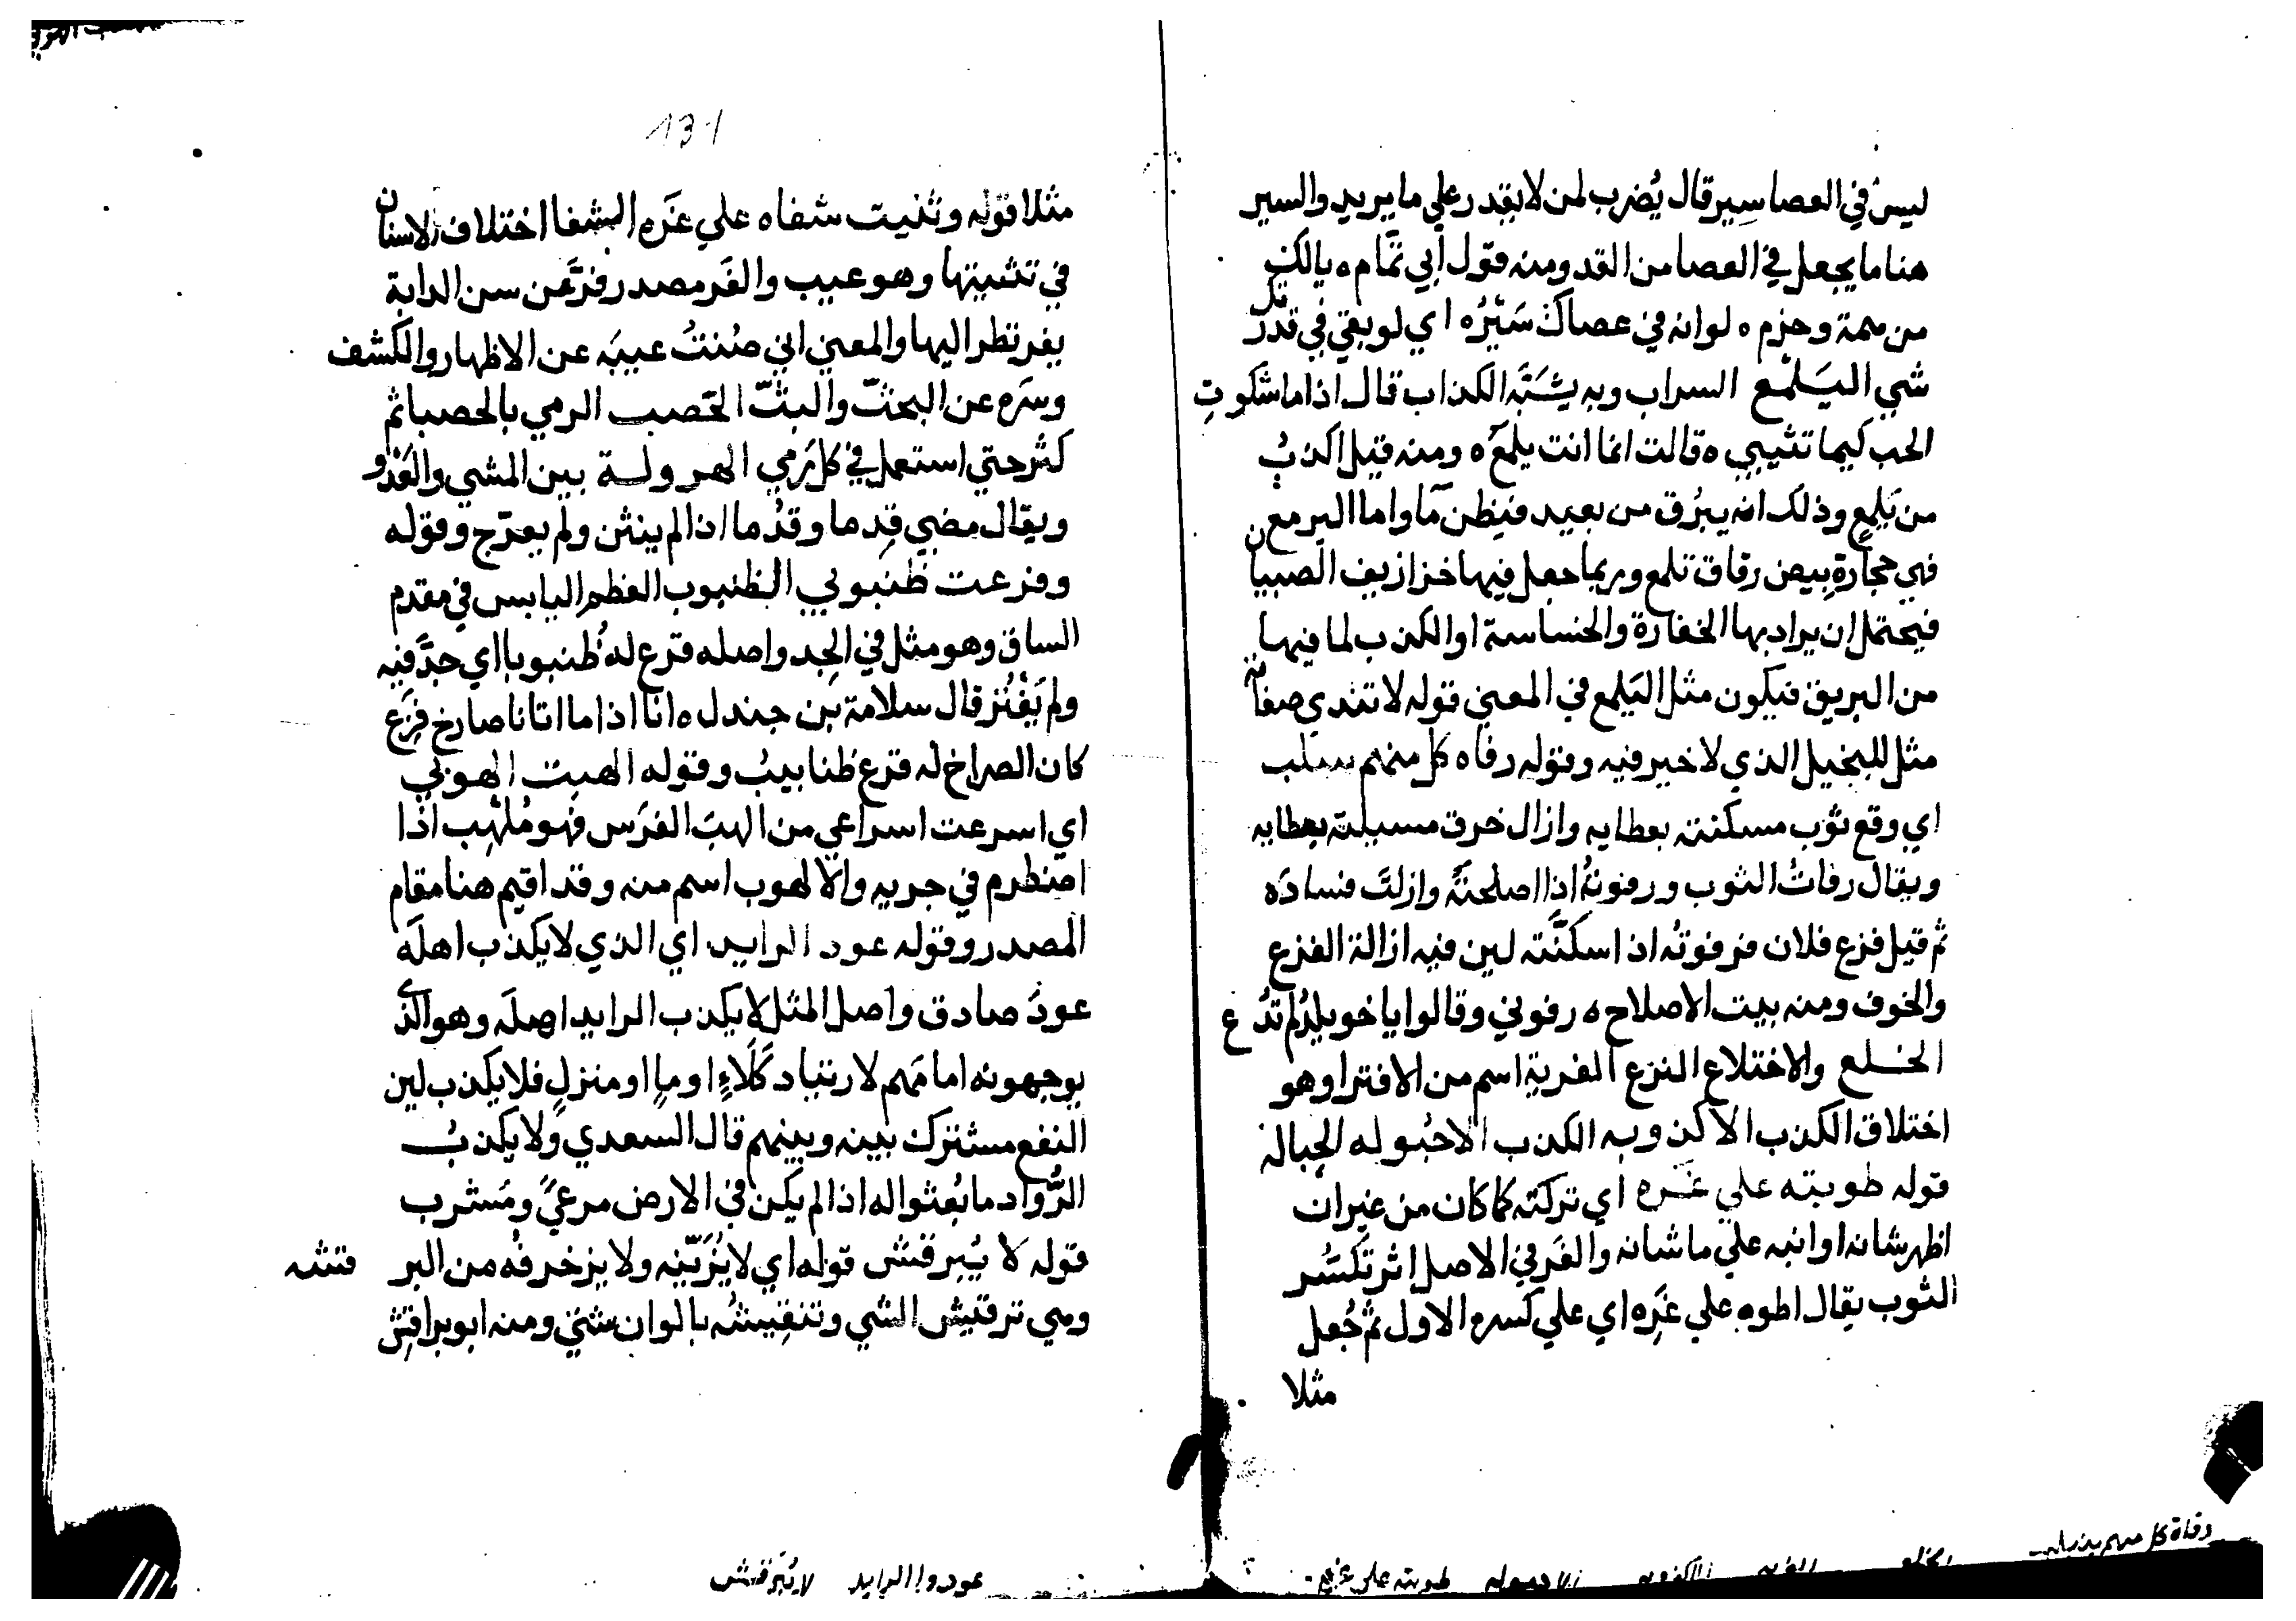 ليس في العصا سير قال يُضرب لمن لا يقدر علي ما يريد والسير
هنا ما يجعل في العصا من القد ومنه قول أبي تمّام ه يا لك
من همة وحزم ه لو انه في عصاك سَيْرُه اي لو بقي في قدر
شي اليَلْمع السراب وبه يشبّه الكذاب قال اذا ما شكوتِ
الحب كيما تثيبي ه قالت انما انت يلمع ه ومنه قيل اكذبُ
من يَلمعٍ وذلك انه يبرُق من بعيد فيظن مآ واما اليرمع
فهي حجارة بيض رقاق تلمع وربما جعل فيها خزازيف الصبيان
فيحتمل ان يراد بها الخفارة والخساسة او الكذب لما فيها
من البريق فيكون مثل اليلمع في المعني قوله لا تندي صفاته
مثل للبخيل الذي لا خير فيه وقوله رفاه كل منهم
اي وقع ثوب مسكنته بعطايه وازال خرق مسيلته بعطايه
ويقال رفاتُ الثوب ورفوتهُ اذا اصلحتهَ وازلتَ فسادَه
ثم قيل فزع فلان فرفوتُه اذا سكنَّته لين فيه ازالة الفزع
والخوف ومنه بيت الاصلاح ه رفوني وقالوا يا خويلدُ لم تُدع
الخلع والاختلاع النزع الفرية اسم من الافترا وهو
اختلاق الكذب الاكذوبه الكذب الاحبُوله الحِباله
قوله طويته علي غَره اي تركته كما كان من غير ان
اظهر شانه او انبه علي ما شانه والغَر في الاصل اثر تكسُّر
الثوب يقال اطوه علي غَرِه اي علي كسره الاول ثم جُعل
مثلا
131
مثلا قوله وثنيت شفاه علي غَره الشفا اختلاف الاسنان
في تثبيتها وهو عيب والفَر مصدر فرَّعَن سن الدابة
يفر نظر اليها والمعني اني صُنتُ عيبَه عن الاظهار والكشف
وسَره عن البحثّ والبثّ الحَصب الرمي بالحصبا ثم
كثر حتي استعمل في كل رَمي الهرولة بين المشي والعَدْو
ويقال مضي قِدما وقُدُما اذا لم ينثن ولم يعرّج وقوله
وقرعت ظنبوبي الظنبوب العظم اليابس في مقدم
الساق وهو مثل في الجِد واصله قرع له ظُنبوبا اي جدَّ فيه
ولم يَفْتُر قال سلامة بن جندل ه انا اذا ما اتانا صارخ فزِع
كان الصراخ له قرع ظنابيبُ وقوله الهبت الهوبي
اي اسرعت اسراعي من الهبَ الفرَس فهو مُلْهِب اذا
اضطرم في جريه والالهوب اسم منه وقد اقيم هنا مقام
المصدر وقوله عود الرايد اي الذي لا يكذب اهلَه
عودَ صادق واصل المثل لا يكذب الرايد اهلَه وهو الذي
يوجهونه امامَهم لارتياد كَلَاءٍ او ماٍ او منزلٍ فلا يكذب لين
النفع مشترك بينه وبينهم قال السعدي ولا يكذبُ
الرُّواد ما بُعِثوا له اذا لم يكن في الارض مرعيً ومَشرب
قوله لا يُبرقش قوله اي لا يُزَيّنه ولا يزخرفُه من البر قشه
وهي ترقيش الشي وتنقِيشُه بالوان شتي ومنه ابو براقش
رفاة كل منهم
طويته علي غره
عودوا الرايد لا يُبَرقش